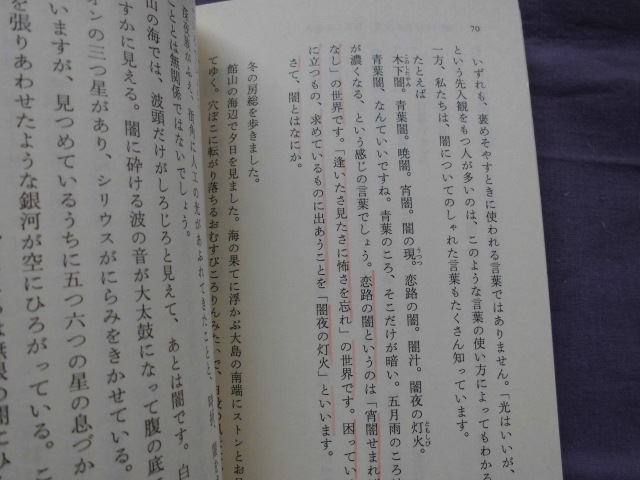 70
いずれも、褒めそやすときに使われる言葉ではありません。「光はいいが、
という先入観をもつ人が多いのは、このような言葉の使い方によってもわかる
一方、私たちは、闇についてのしゃれた言葉もたくさん知っています。
たとえば
木下闇。青葉闇。暁闇。宵闇。闇の現。恋路の闇。闇汁。闇夜の灯火。
青葉闇、なんていいですね。青葉のころ、そこだけが暗い。五月雨のころは
が濃くなる、という感じの言葉でしょう。恋路の闇というのは「宵闇せまれば
なし」の世界です。「逢いたさ見たさに怖さを忘れ」の世界です。困ってい
に立つもの、求めているものに出あうことを「闇夜の灯火」といいます。
さて、闇とはなにか。
冬の房総を歩きました。
館山の海辺で夕日を見ました。海の果てに浮かぶ大島の南端にストンとお
てゆく。穴ぼこに転がり落ちるおむすびころりんみたいで、
こととは無関係ではないでしょう。
山の海では、波頭だけがしろじろと見えて、あとは闇です。白
すかに見える。闇に砕ける波の音が大太鼓になって腹の底
オンの三つ星があり、シリウスがにらみをきかせている。
いますが、見つめているうちに五つ六つの星の息づか
を張りあわせたような銀河が空にひろがっている。こ